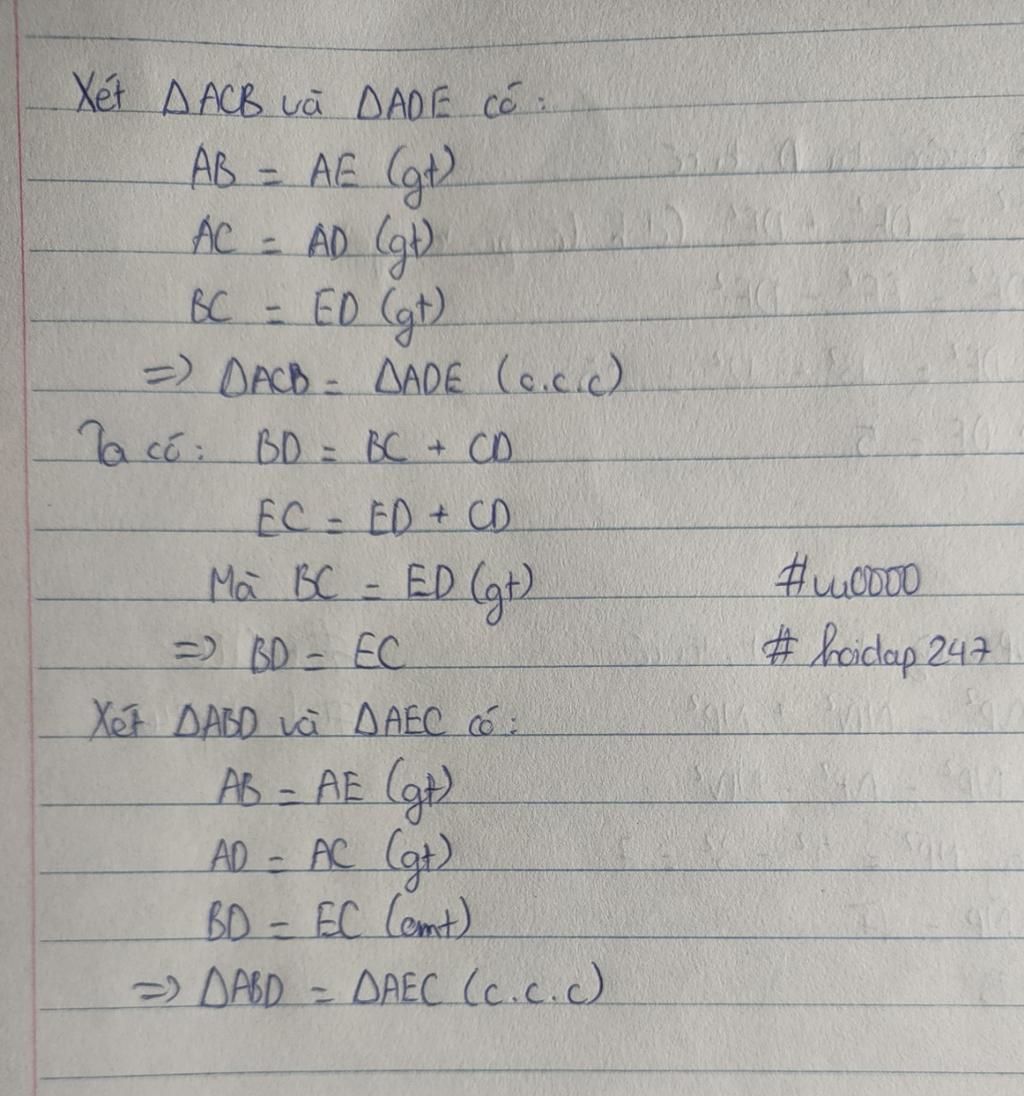 Xét ΔACB và ΔADE có:
AB = AE (gt)
AC = AD (gt)
BC = ED (gt)
=> ΔACB = ΔADE (c.c.c)
Ta có: BD = BC + CD
EC = ED + CD
Mà BC = ED (gt) #uu0000
=> BD = EC # hoidap247
Xét ΔABD và ΔAEC có:
AB = AE (gt)
AD = AC (gt)
BD = EC (cmt)
=> ΔABD = ΔAEC (c.c.c)